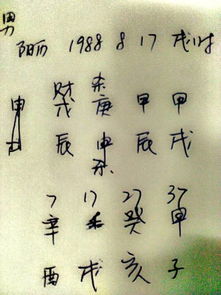 男
阳历 1988 8 17 戌时
财 杀
戊 庚 甲 甲
辰 申 辰 戌
杀
7 17 27 37
辛 壬 癸 甲
酉 戌 亥 子